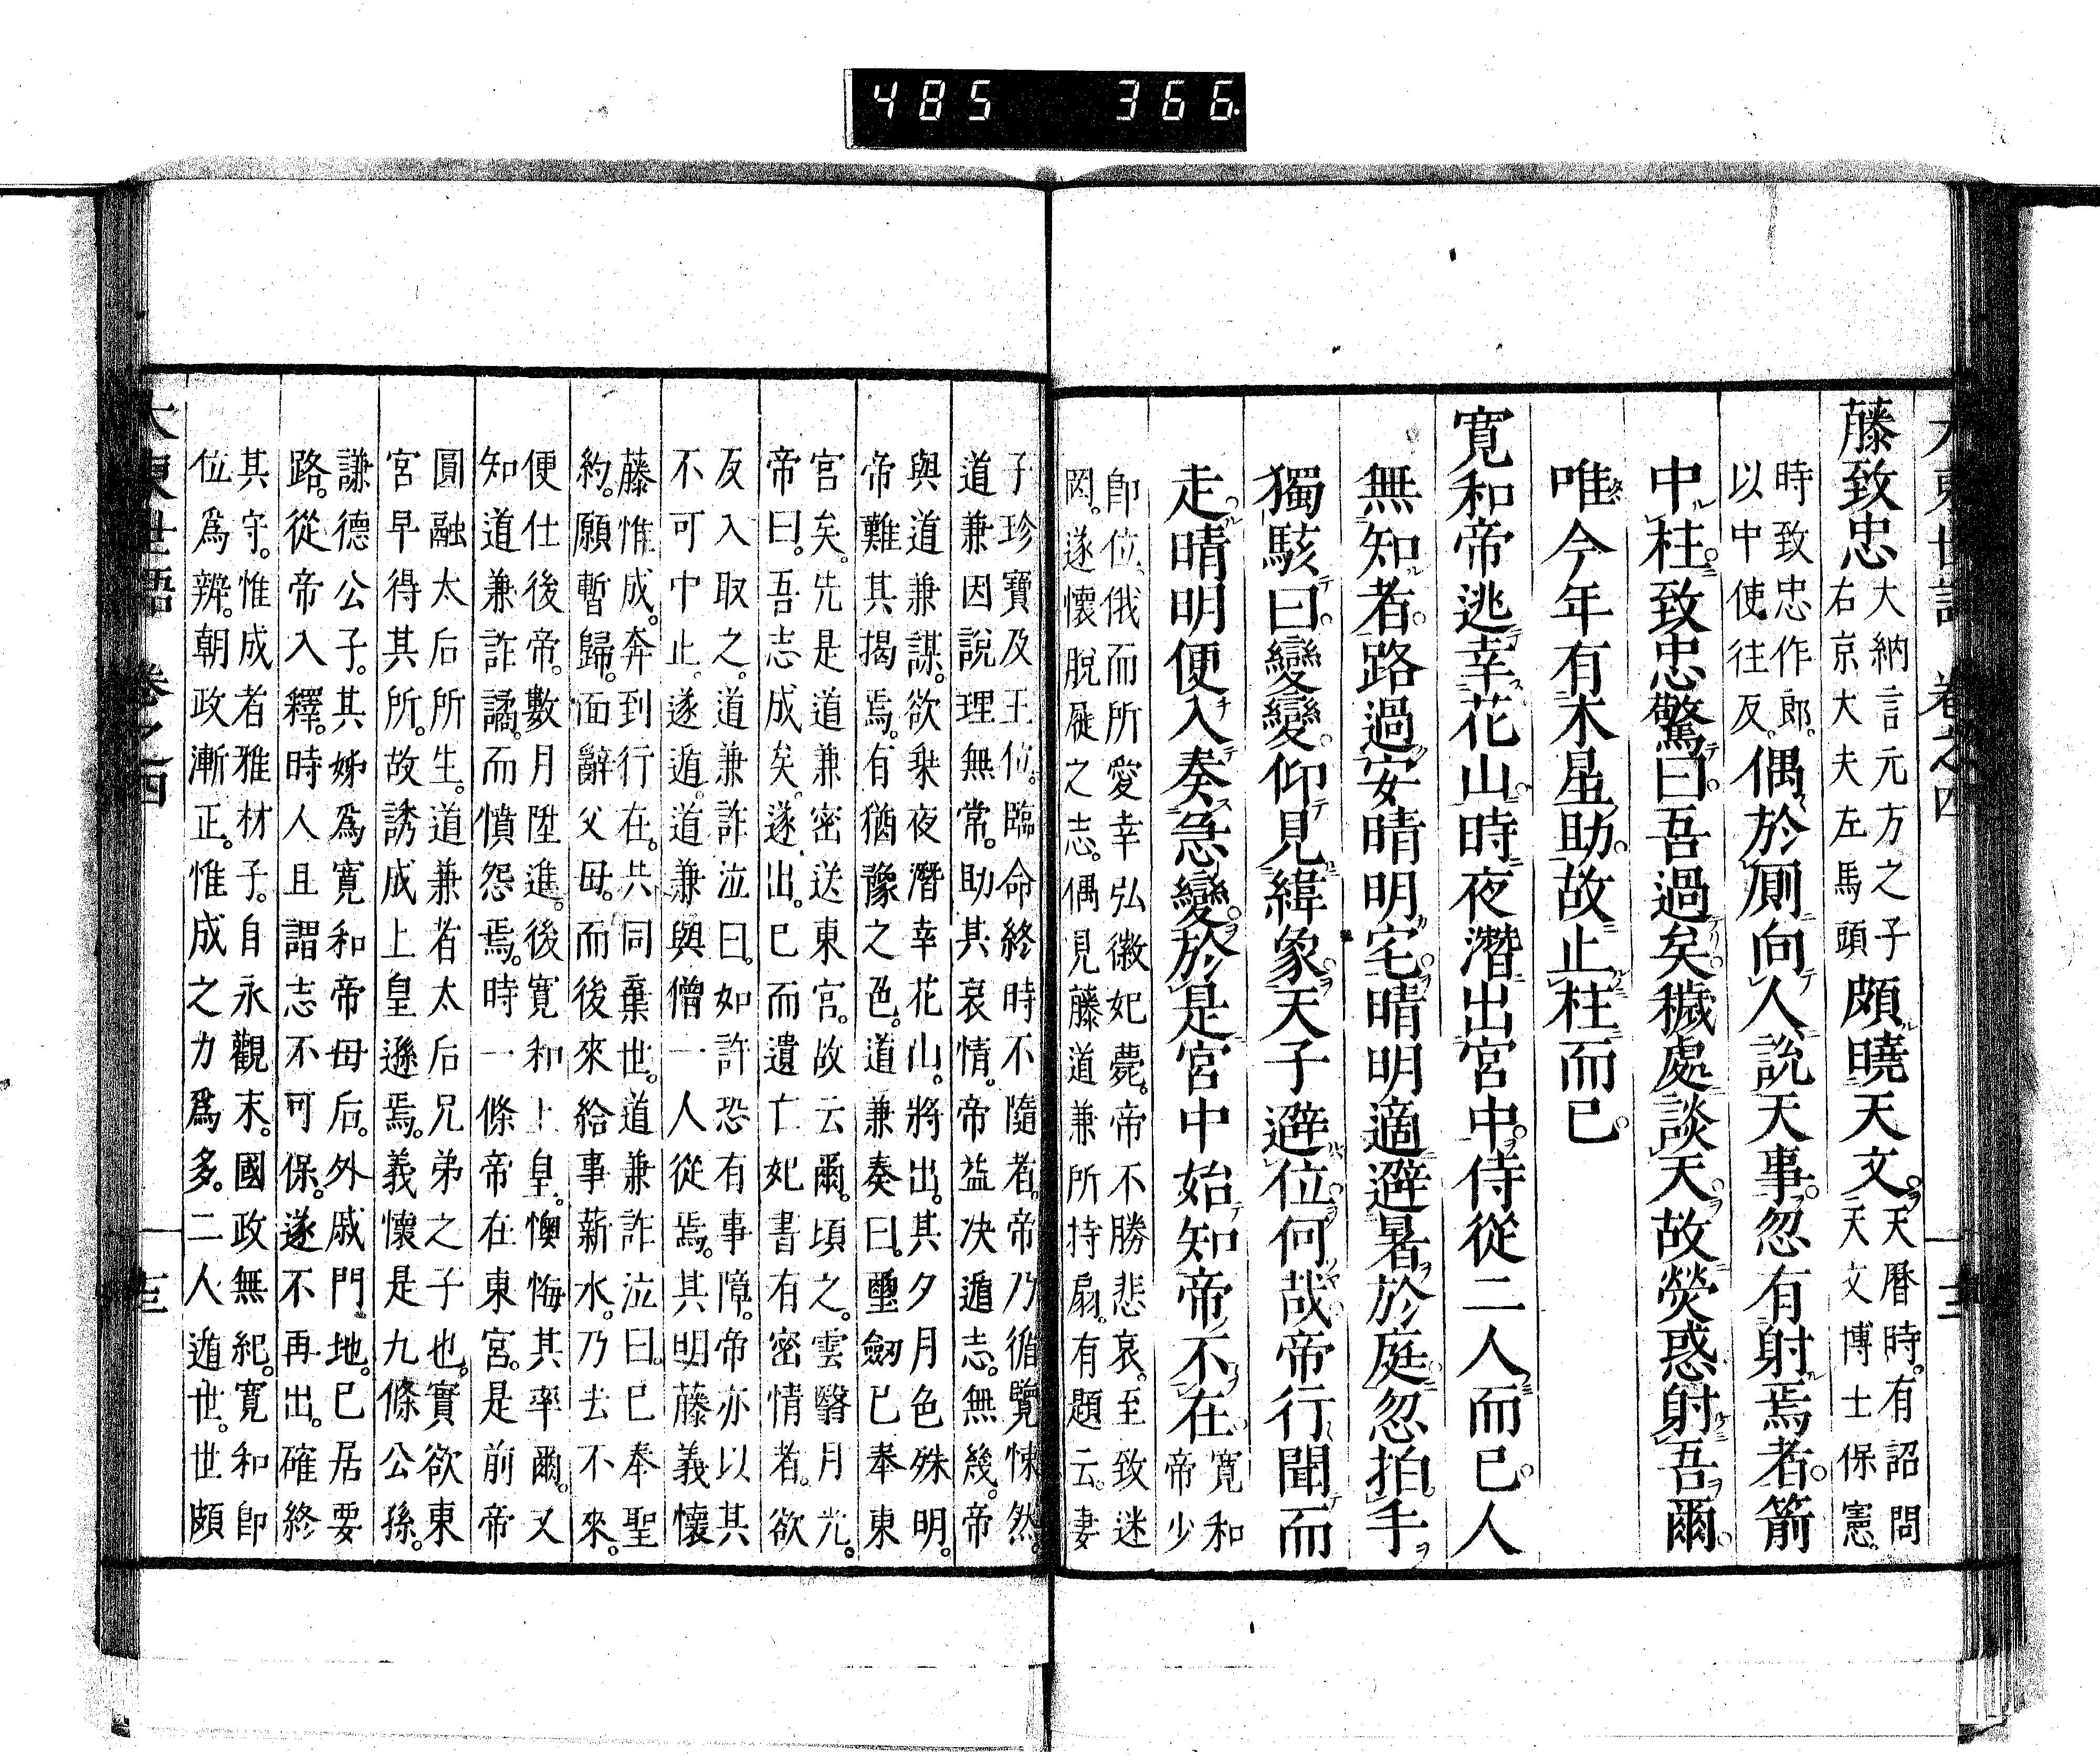 485 366
大東世語 卷之四 十三
藤致忠大納言元方之子右京大夫左馬頭頗曉天文天曆時有詔問天文博士保憲
時致忠作郎以中使往反偶於厠向人說天事忽有射焉者箭
中柱致忠驚曰吾過矣穢處談天故熒惑射吾爾
唯今年有木星助故止柱而已
寬和帝逃幸花山時夜潛出宮中侍從二人而已人
無知者路過安晴明宅晴明適避暑於庭忽拍手
獨駭曰變變仰見緯象天子避位何哉帝行聞而
走晴明便入奏急變於是宮中始知帝不在寬和帝少
卽位俄而所愛幸弘徽妃薨帝不勝悲哀至致迷
罔遂懷脫屣之志偶見藤道兼所持扇有題云妻
子珍寶及王位臨命終時不隨者帝乃循覽悚然
道兼因說理無常助其哀情帝益决遁志無幾帝
與道兼謀欲乘夜潛幸花山將出其夕月色殊明
帝難其揭焉有猶豫之色道兼奏曰璽劒已奉東
宮矣先是道兼密送東宮故云爾頃之雲翳月光
帝曰吾志成矣遂出已而遺亡妃書有密情者欲
反入取之道兼詐泣曰如許恐有事障帝亦以其
不可中止遂遁道兼與僧一人從焉其明藤義懷
藤惟成奔到行在共同棄世道兼詐泣曰已奉聖
約願暫歸面辭父母而後來給事薪水乃去不來
便仕後帝數月陞進後寬和上皇懊悔其率爾又
知道兼詐譎而憤怨焉時一條帝在東宮是前帝
圓融太后所生道兼者太后兄弟之子也實欲東
宮早得其所故誘成上皇遜焉義懷是九條公孫
謙德公子其姊爲寬和帝母后外戚門地已居要
路從帝入釋時人且謂志不可保遂不再出確終
其守惟成者雅材子自永觀末國政無紀寬和卽
位爲辨朝政漸正惟成之力爲多二人遁世世頗
大東世語 卷之四 十三